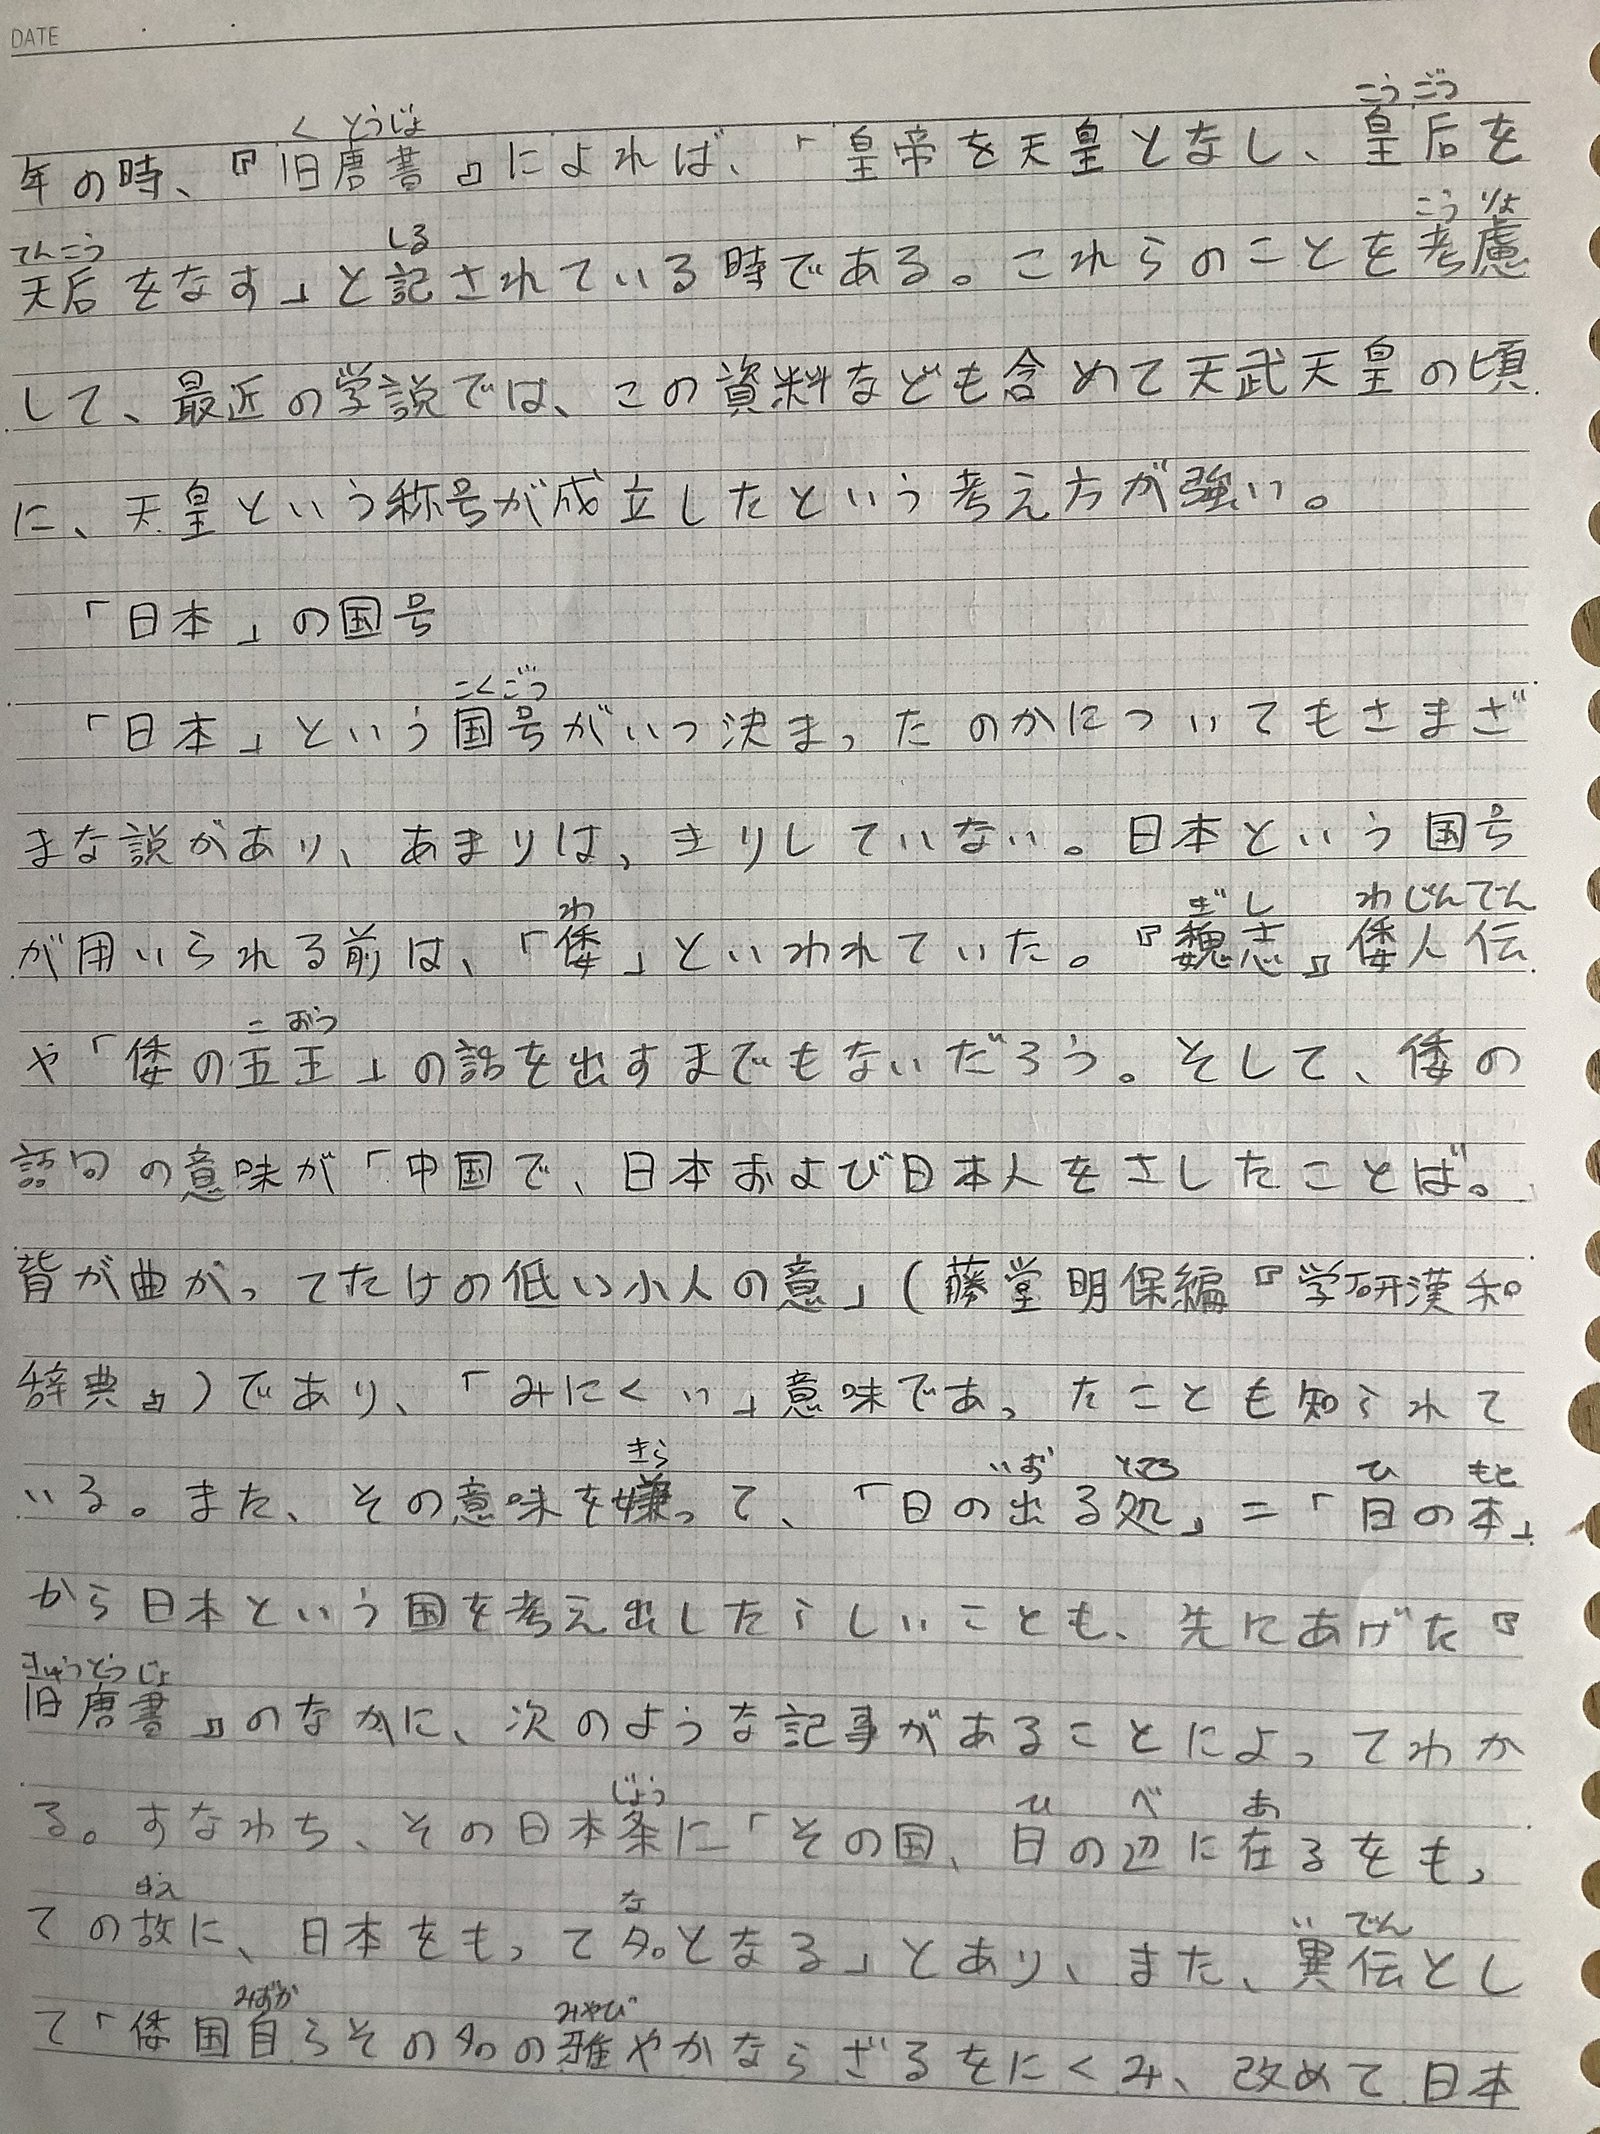 DATE
く とうじょ こうごう
年の時、『旧唐書』によれば、「皇帝を天皇となし、皇后を
てんこう しる こうりょ
天后をなす」と記されている時である。これらのことを考慮
して、最近の学説では、この資料なども含めて天武天皇の頃
に、天皇という称号が成立したという考え方が強い。
「日本」の国号
こくごう
「日本」という国号がいつ決まったのかについてもさまざ
まな説があり、あまりはっきりしていない。日本という国号
わ ぎし わじんでん
が用いられる前は、「倭」といわれていた。『魏志』倭人伝
ごおう
や「倭の五王」の話を出すまでもないだろう。そして、倭の
語句の意味が「中国で、日本および日本人をさしたことば。
背が曲がってたけの低い小人の意」(藤堂明保編『学研漢和
辞典』)であり、「みにくい」意味であったことも知られて
きら いず ところ ひ もと
いる。また、その意味を嫌って、「日の出る処」=「日の本」
から日本という国を考え出したらしいことも、先にあげた『
きゅうとうじょ
旧唐書』のなかに、次のような記事があることによってわか
じょう ひ べ あ
る。すなわち、その日本条に「その国、日の辺に在るをも っ
ゆえ な い でん
ての故に、日本をもって名となる」とあり、また、異伝とし
みずか みやび
て「倭国自らその名の雅やかならざるをにくみ、改めて日本